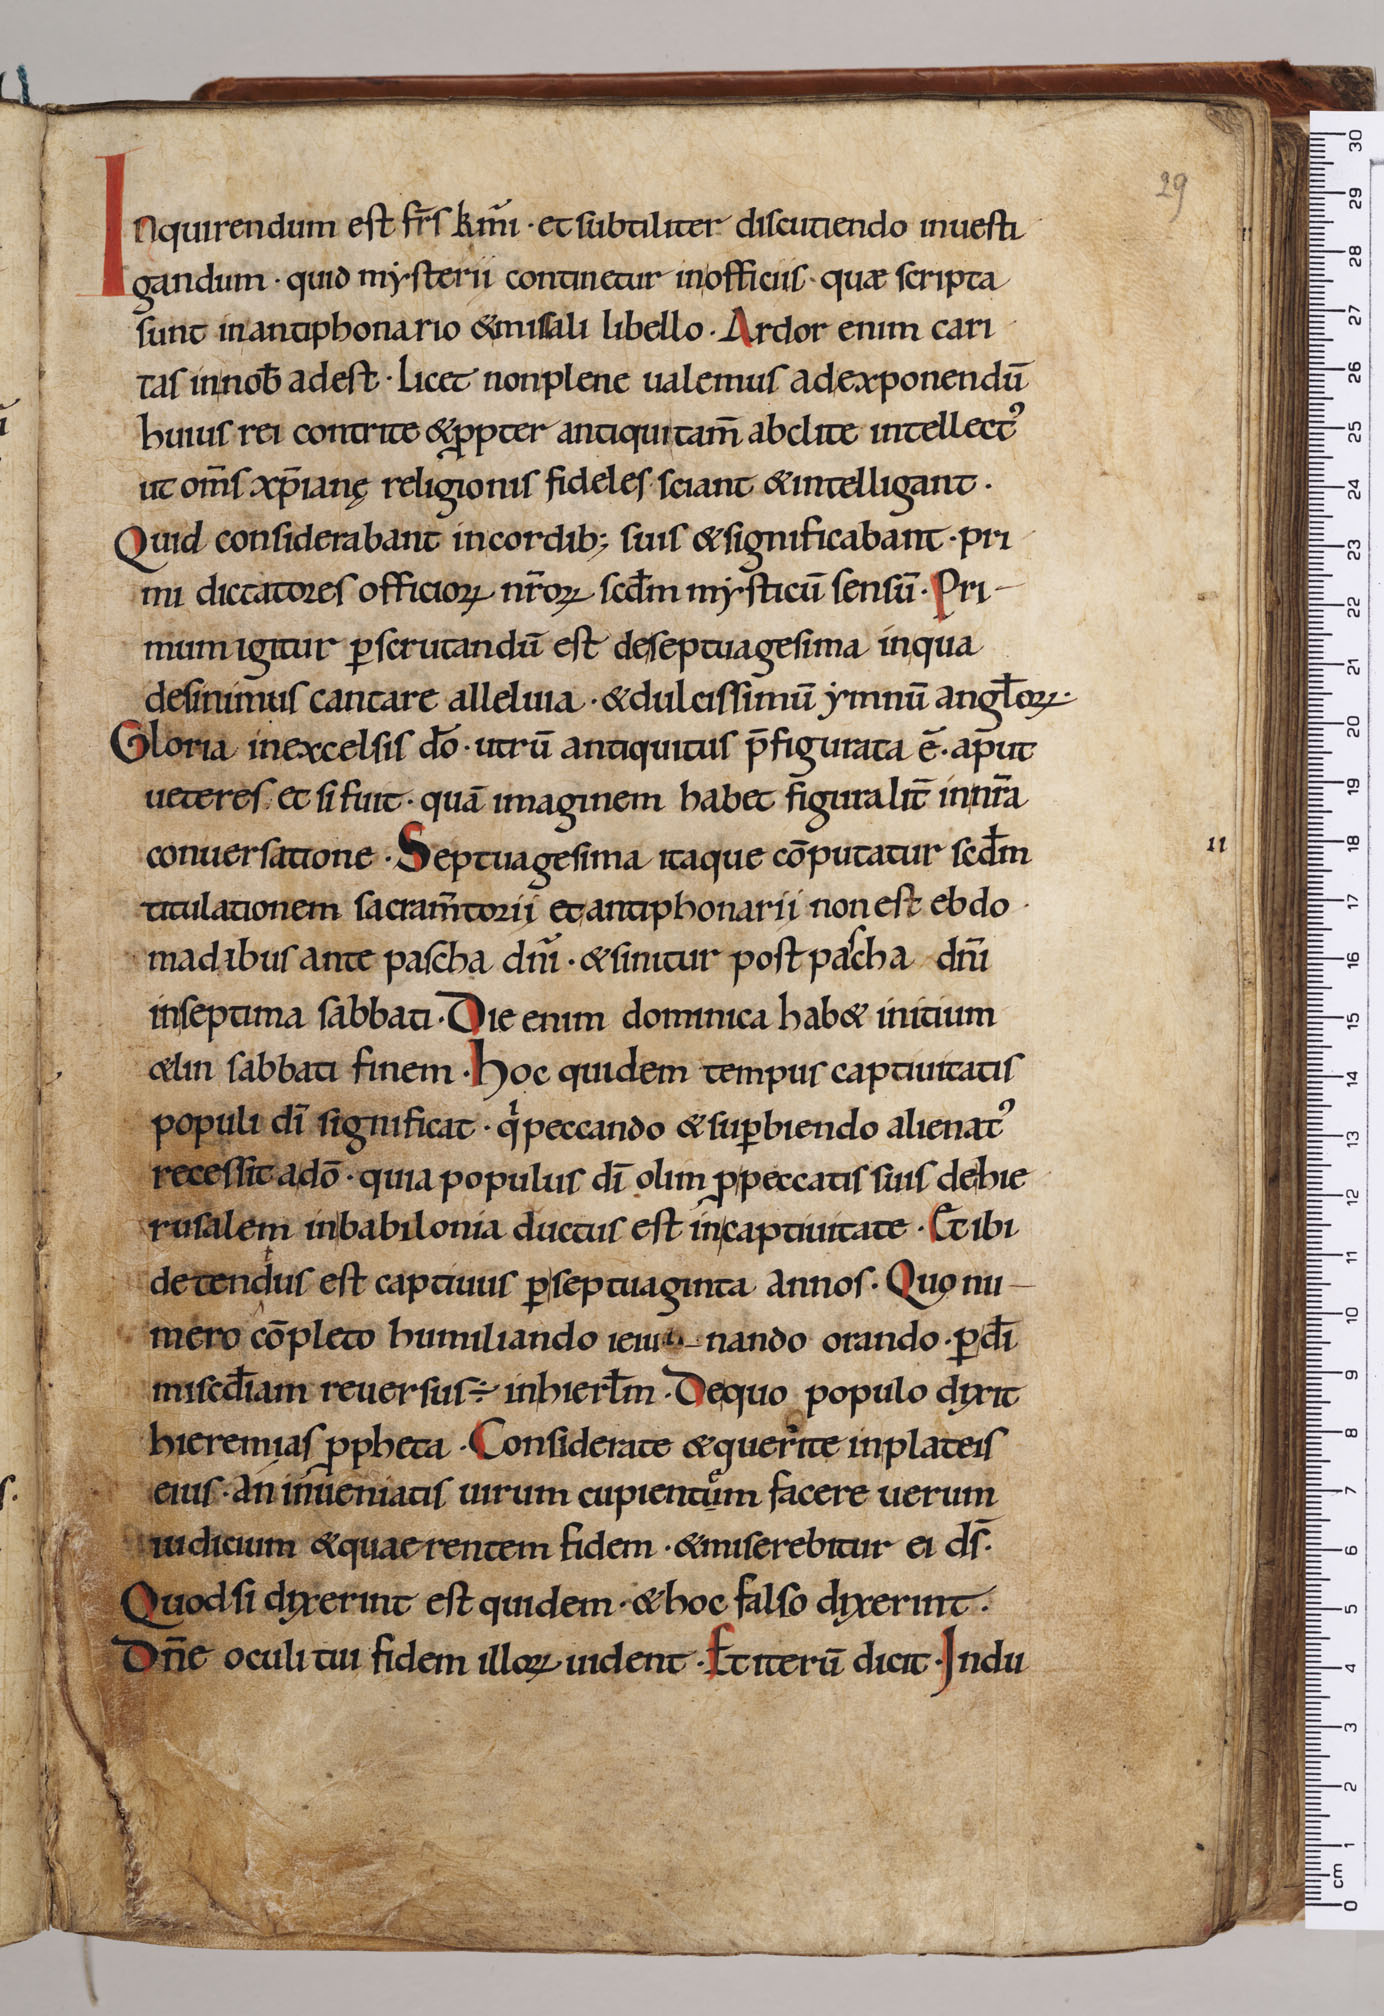 29
Inquirendum est fr̄s km̄i · et subtiliter discutiendo inuesti
gandum · quid mẏsterii continetur inofficiis · quæ scripta
sunt inantiphonario &missali libello · Ardor enim cari
tas innob̄ adest · Licet nonplene ualemus adexponendū
huius rei contrite &ꝓpter antiquitam̄ abdite intellectꝰ
ut om̄s xp̄ianę religionis fideles sciant &intelligant ·
Quid considerabant incordib; suis &significabant · pri
mi dictatores officioꝝ nr̄oꝝ scd̄m mẏsticū sensū · Pri-
mum igitur ꝑscrutandū est deseptuagesima inqua
desinimus cantare alleluia · &dulcissimū ẏmnū angl̄oꝝ ·
Gloria inexcelsis dō · utrū antiquitus p̄figurata ē · aput
ueteres et si fuit · quā imaginem habet figuralit̄ innr̄a
conuersatione · Septuagesima itaque cōputatur scd̄m
11
titulationem sacram̄torii et antiphonarii non est ebdo
madibus ante pascha dn̄i · &finitur post pascha dn̄i
inseptima sabbati · Die enim dominica hab& initium
&in sabbati finem · hoc quidem tempus captiuitatis
populi dī significat · qͥ peccando &suꝑbiendo alienatꝰ
recessit adō · quia populus dī olim ꝓpeccatis suis dehie
rusalem inbabilonia ductus est incaptiuitate · Et ibi
detentus est captiuus ꝑseptuaginta annos · Quo nu-
mero cōpleto humiliando ieiu-nando orando · ꝑ dī
miscd̄iam reuersus ÷ inhierl̄m · Dequo populo dixit
hieremias ꝓpheta · Considerate &querite inplateis
eius · an inueniatis uirum cupientem facere uerum
iudicium &quaerentem fidem · &miserebitur ei ds̄ ·
Quodsi dixerint est quidem · &hoc falso dixerint ·
Dn̄e oculi tui fidem illoꝝ uident · Et iterū dicit · Indu